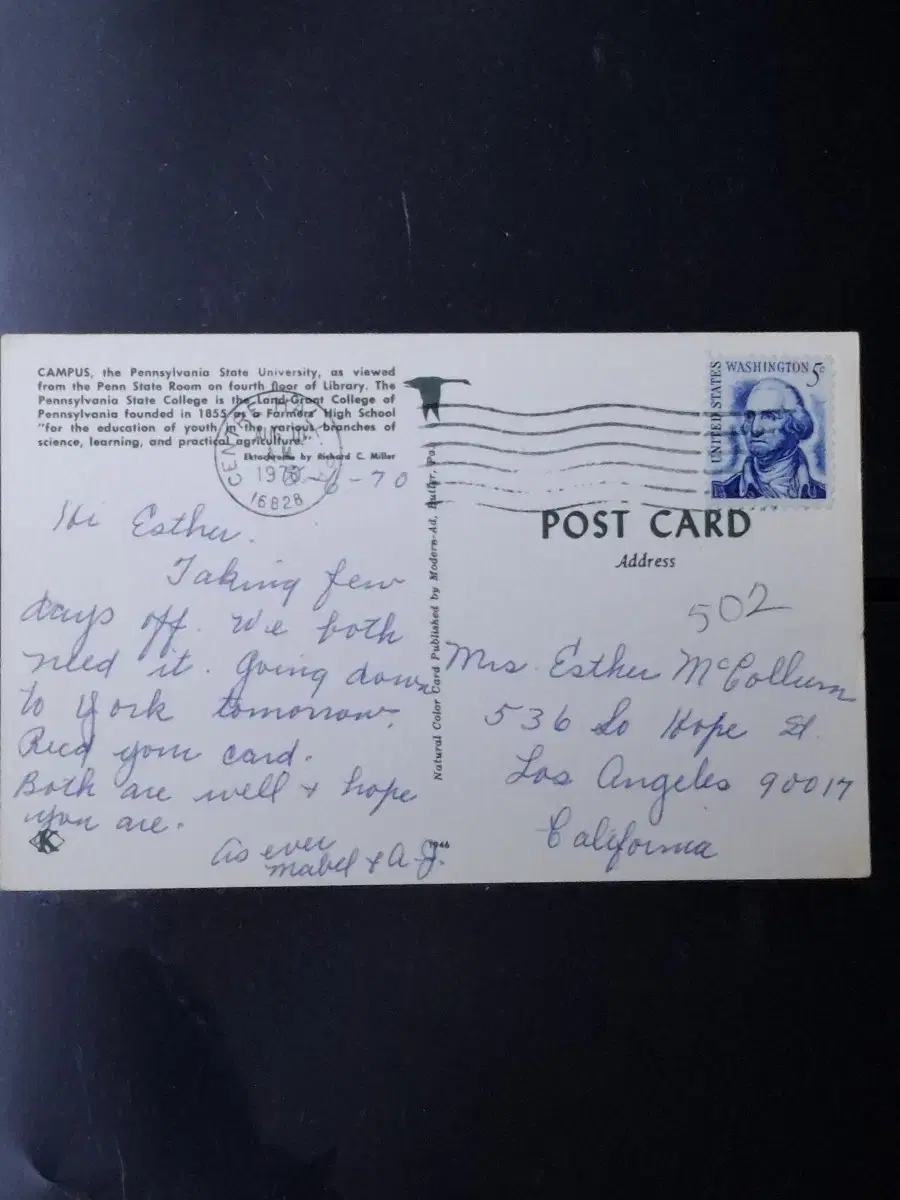 CAMPUS, the Pennsylvania State University, as viewed
from the Penn State Room on fourth floor of Library. The
Pennsylvania State College is the Land-Grant College of
Pennsylvania founded in 1855 as a Farmers' High School
"for the education of youth in the various branches of
science, learning, and practical agriculture."
Ektachrome by Richard C. Miller
AM
1970
16828
6-70
Hi Esther.
Taking few
days off. We both
need it. Going down
to York tomorrow.
Recd your card.
Both are well + hope
you are.
As ever
Mabel + A.J.
K
1946
Natural Color Card Published by Modern-Ad, Butler, Pa.
UNITED STATES
WASHINGTON 5c
POST CARD
Address
502
Mrs. Esther McCollum
536 So Hope St.
Los Angeles 90017
California